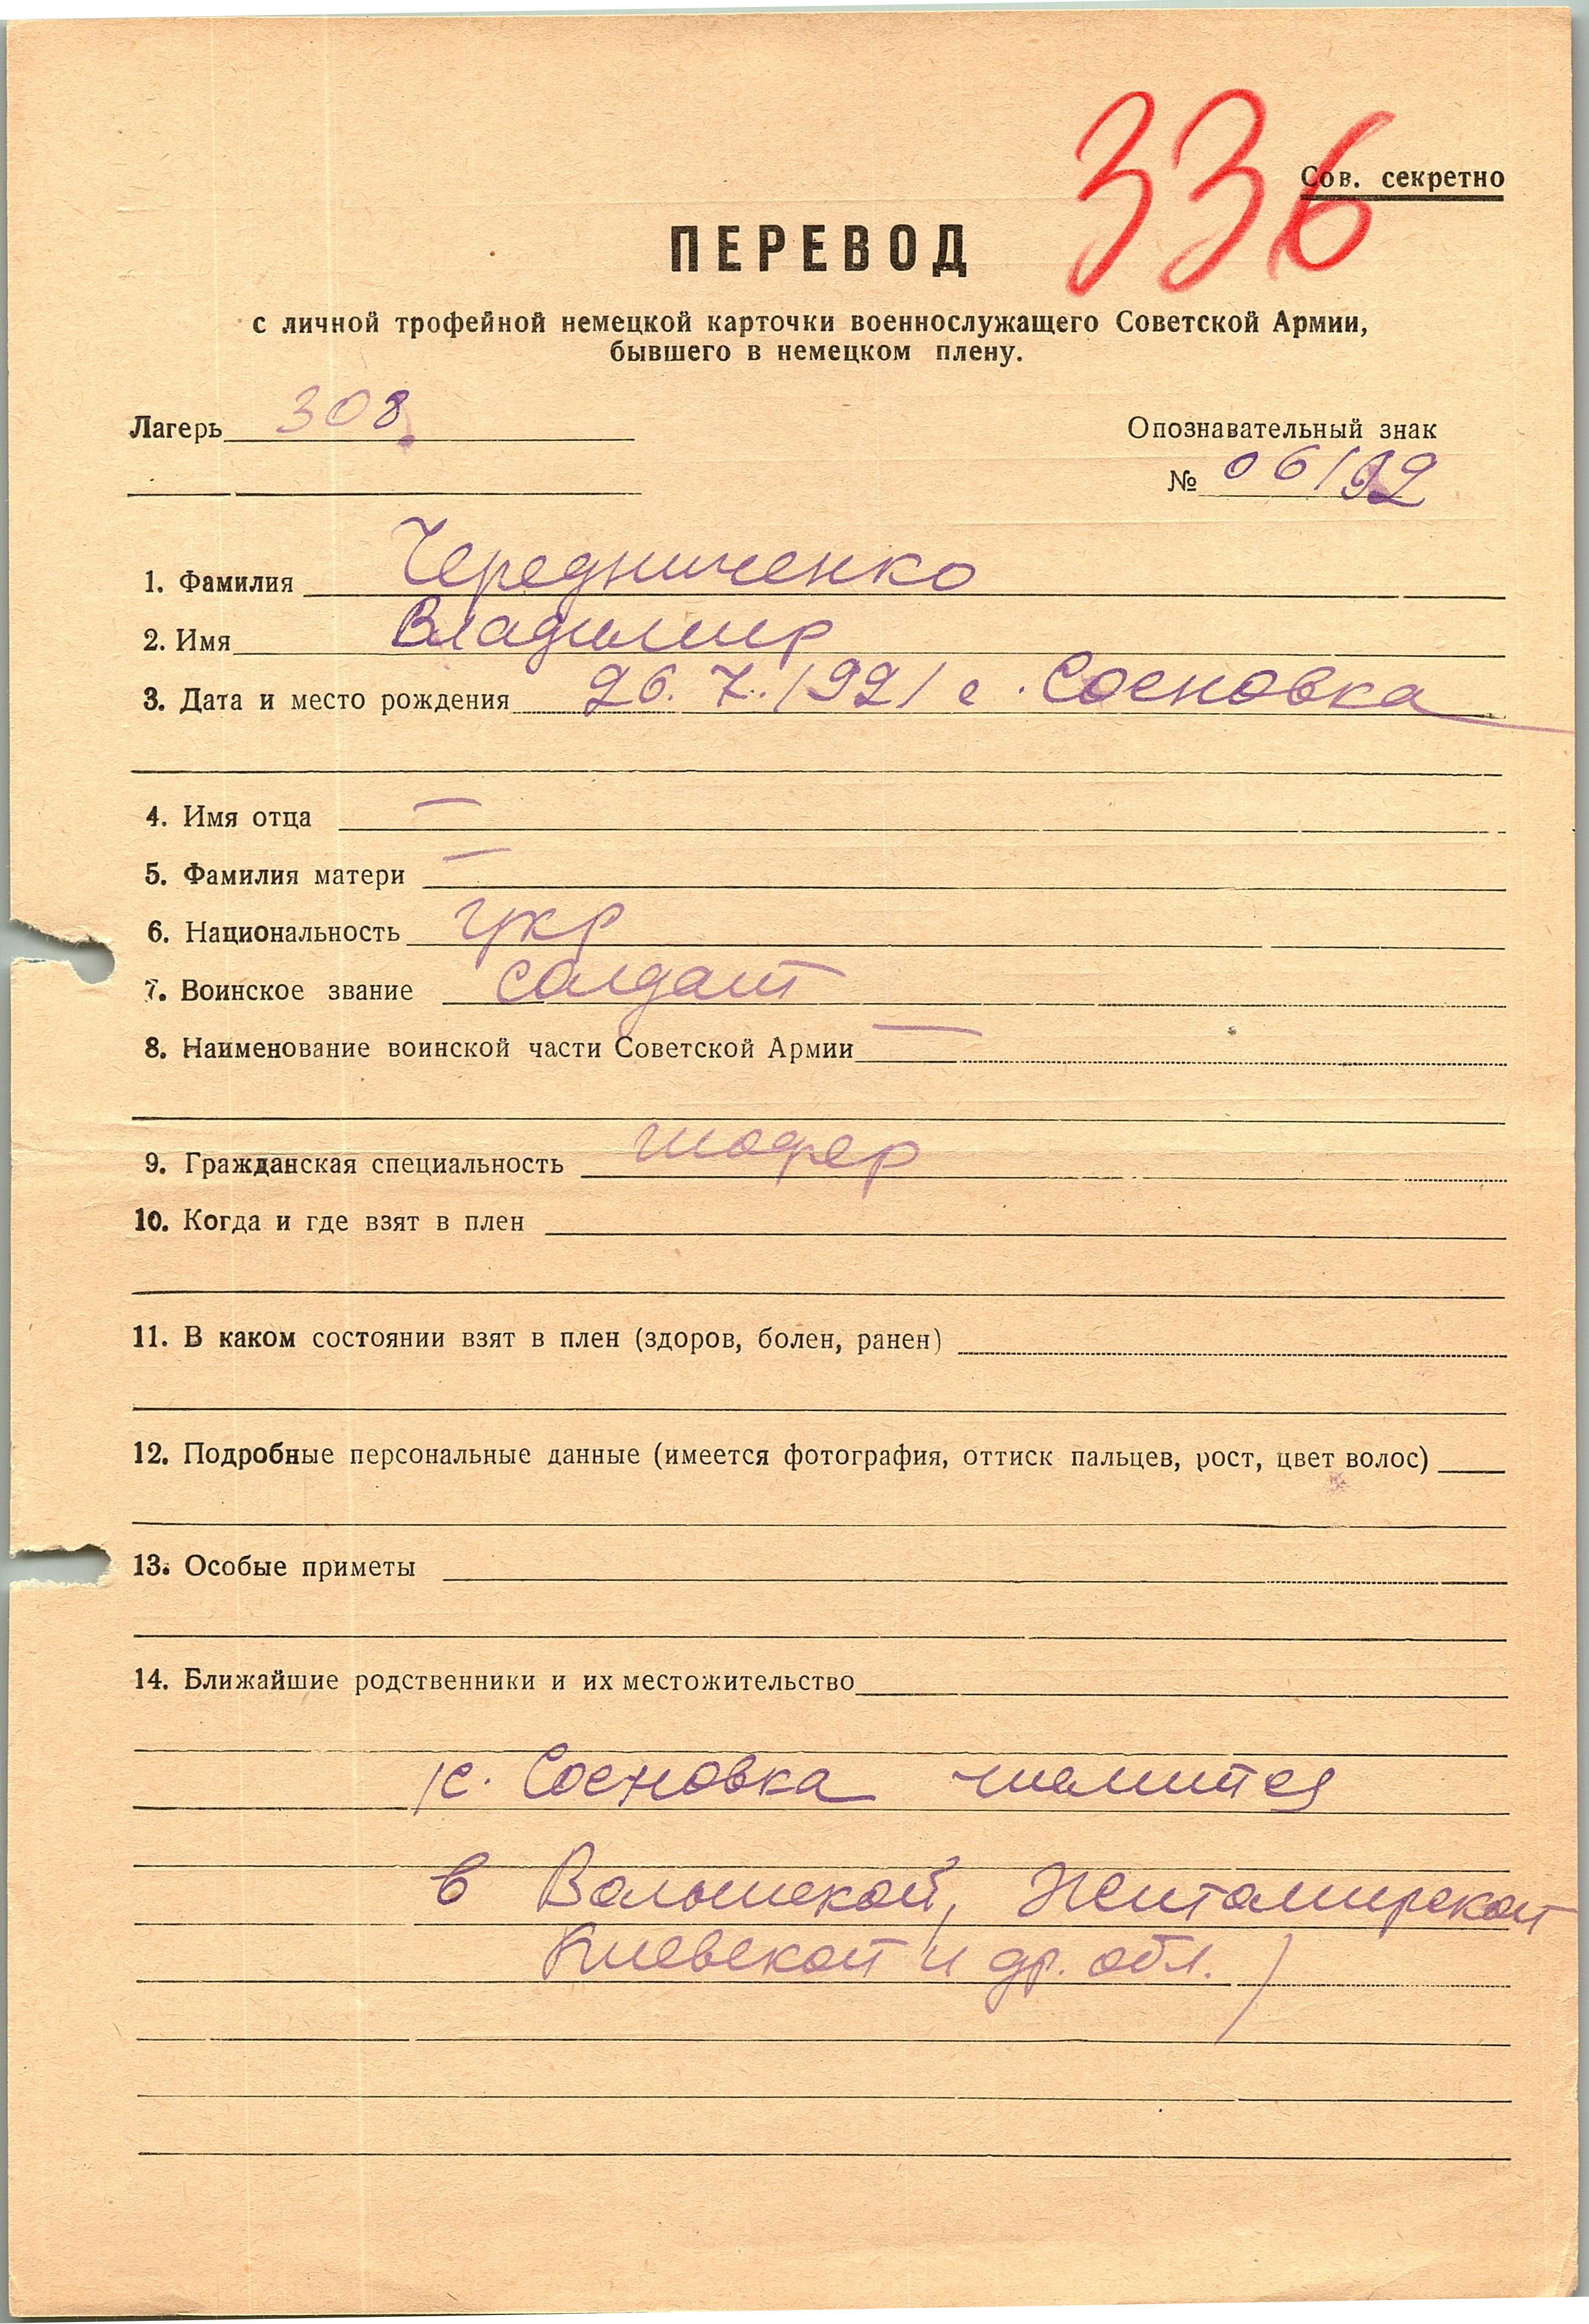 336
Сов. секретно
ПЕРЕВОД
с личной трофейной немецкой карточки военнослужащего Советской Армии,
бывшего в немецком плену.
Лагерь 308
Опознавательный знак
№ 06192
1. Фамилия Чередниченко
2. Имя Владимир
3. Дата и место рождения 26.7.1921 с. Сосновка
4. Имя отца —
5. Фамилия матери —
6. Национальность укр
7. Воинское звание солдат
8. Наименование воинской части Советской Армии —
9. Гражданская специальность шофер
10. Когда и где взят в плен
11. В каком состоянии взят в плен (здоров, болен, ранен)
12. Подробные персональные данные (имеется фотография, оттиск пальцев, рост, цвет волос)
13. Особые приметы
14. Ближайшие родственники и их местожительство
/с. Сосновка имеется
в Волынской, Житомирской
Киевской и др. обл. /